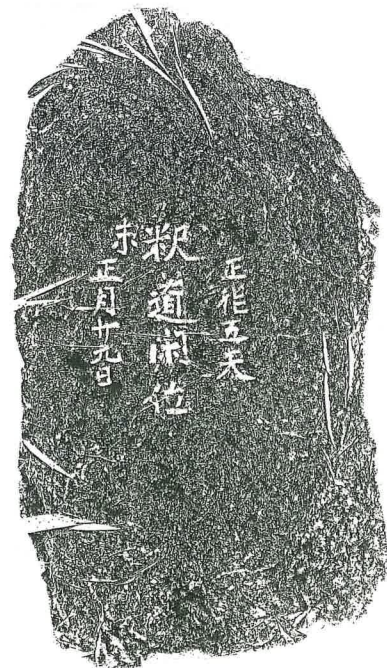 正徳五天
釈道閑位
未正月廿九日